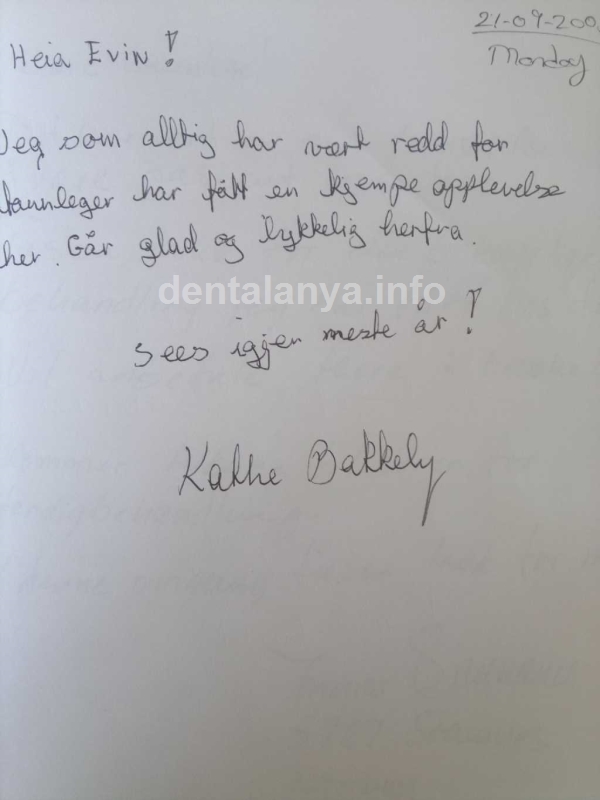 21-09-200
Monday
Heia Evin!
Jeg som alltig har vært redd for
tannleger har fått en kjempe opplevelse
her. Går glad og lykkelig herfra.
dentalanya.info
Sees igjen neste år!
Kathe Bakkely